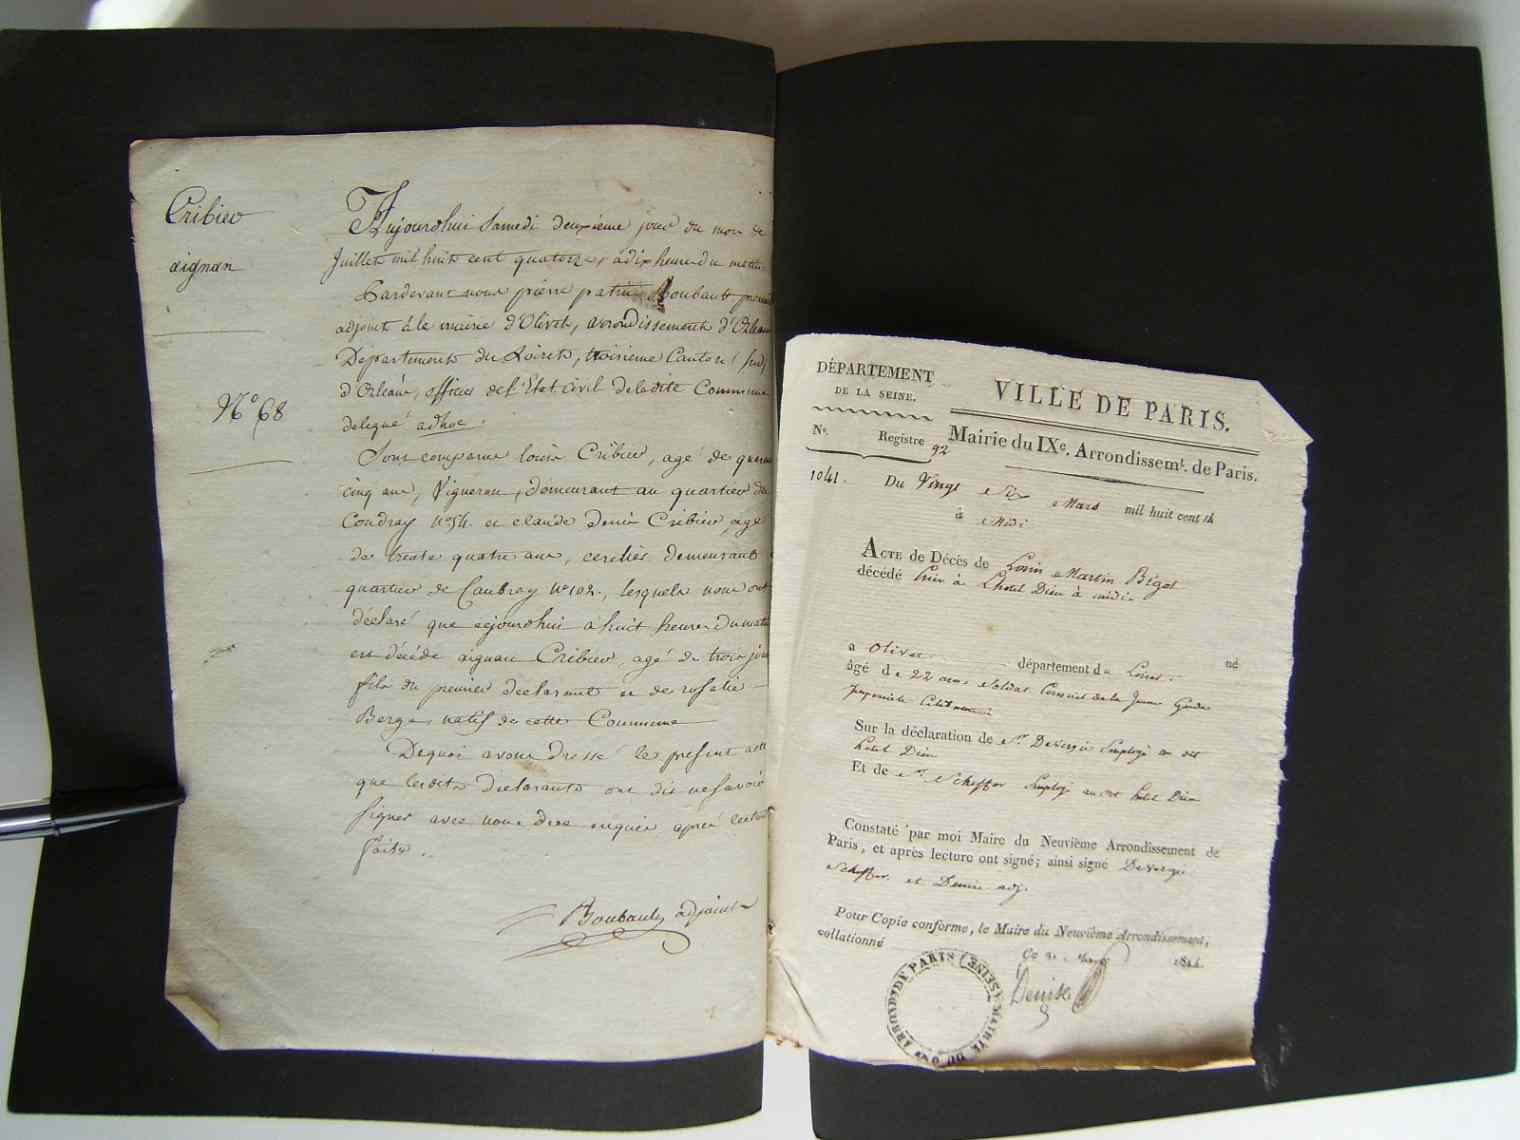 Cribier
aignan
N.º 68
Aujourdhui Samedi deuxieme jour du mois de
Juillet mil huit cent quatorze, à dix heures du matin
Pardevant nous pierre patrice Boubault premier
adjoint à la mairie d'Olivet, arrondissement d'Orleans
Departement du Loiret, troisieme Canton (sud)
d'Orleans, officier de l'Etat civil de ladite Commune
delegué adhoc.
Sont comparus louis Cribier, agé de quarante
cinq ans, Vigneron, demeurant au quartier du
Coudray N.º 54. et claude denis Cribier, agé
de trente quatre ans, cerclier demeurant
quartier de Caubray N.º 102., lesquels nous ont
déclaré que cejourdhui à huit heures du matin
est décédé aignan Cribier, agé de trois jours
fils du premier declarant et de rosalie
Berge, natif de cette Commune
Dequoi avons dressé le present acte
que lesdits declarants ont dit ne savoir
signer avec nous dece enquis après lecture
faite.
Boubault adjoint
DÉPARTEMENT
DE LA SEINE.
VILLE DE PARIS.
N.º Registre 92
Mairie du IXe. Arrondissemt. de Paris.
1041.
Du Vingt Six Mars mil huit cent 14
à Midi
ACTE de Décès de Louis Martin Bigot
décédé hier à L'hotel Dieu à midi
né
à Olivet département du Loiret.
âgé de 22 ans Soldat Conscrit de la Jeune Garde
Celibataire
Sur la déclaration de Sr. Devergie Employé au dit
hotel Dieu
Et de Sr. Scheffer Employé au dit hotel Dieu
Constaté par moi Maire du Neuvième Arrondissement de
Paris, et après lecture ont signé; ainsi signé Devergie
Scheffer et Denise adj.
Pour Copie conforme, le Maire du Neuvième Arrondissement,
collationné
Ce 31 Mars 1814
Denise
MAIRIE DU 9me ARROND. DE PARIS (SEINE)